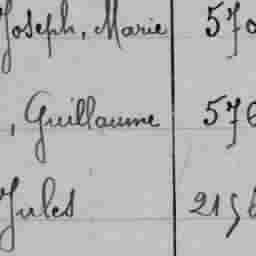 Joseph, Marie 570
, Guillaume 576
Jules 2156